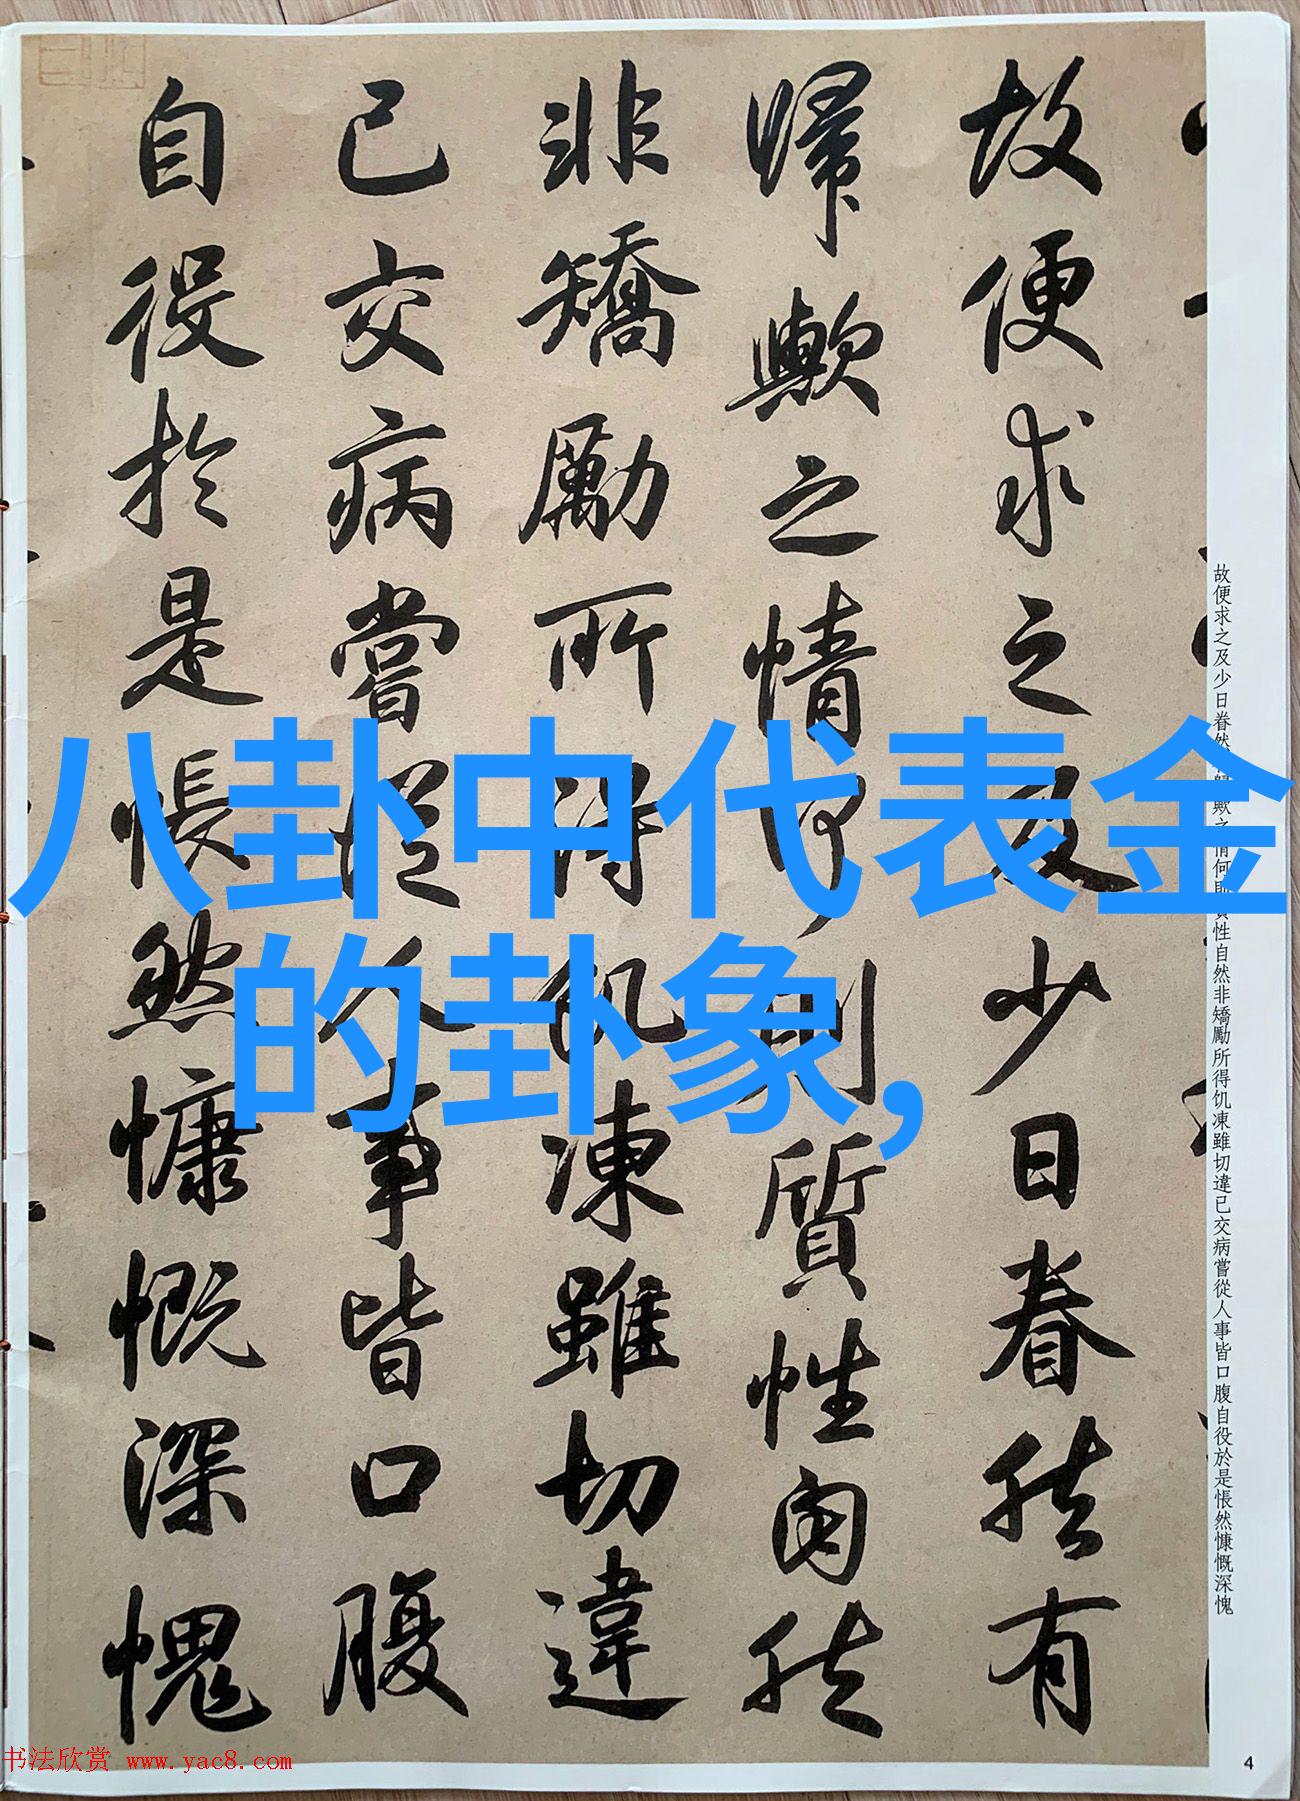 八卦中代表金
的卦象,
故便求之及少日眷然有
歸歟之情何則質性自然
非矯勵所得飢凍雖切違
已交病嘗從人事皆口腹
自役於是悵然慷慨深愧
故便求之及少日眷然有歸歟之情何則質性自然非矯勵所得饥凍雖切違已交病嘗從人事皆口腹自役於是悵然慷慨深愧
书法欣赏 www.yac8.com
4